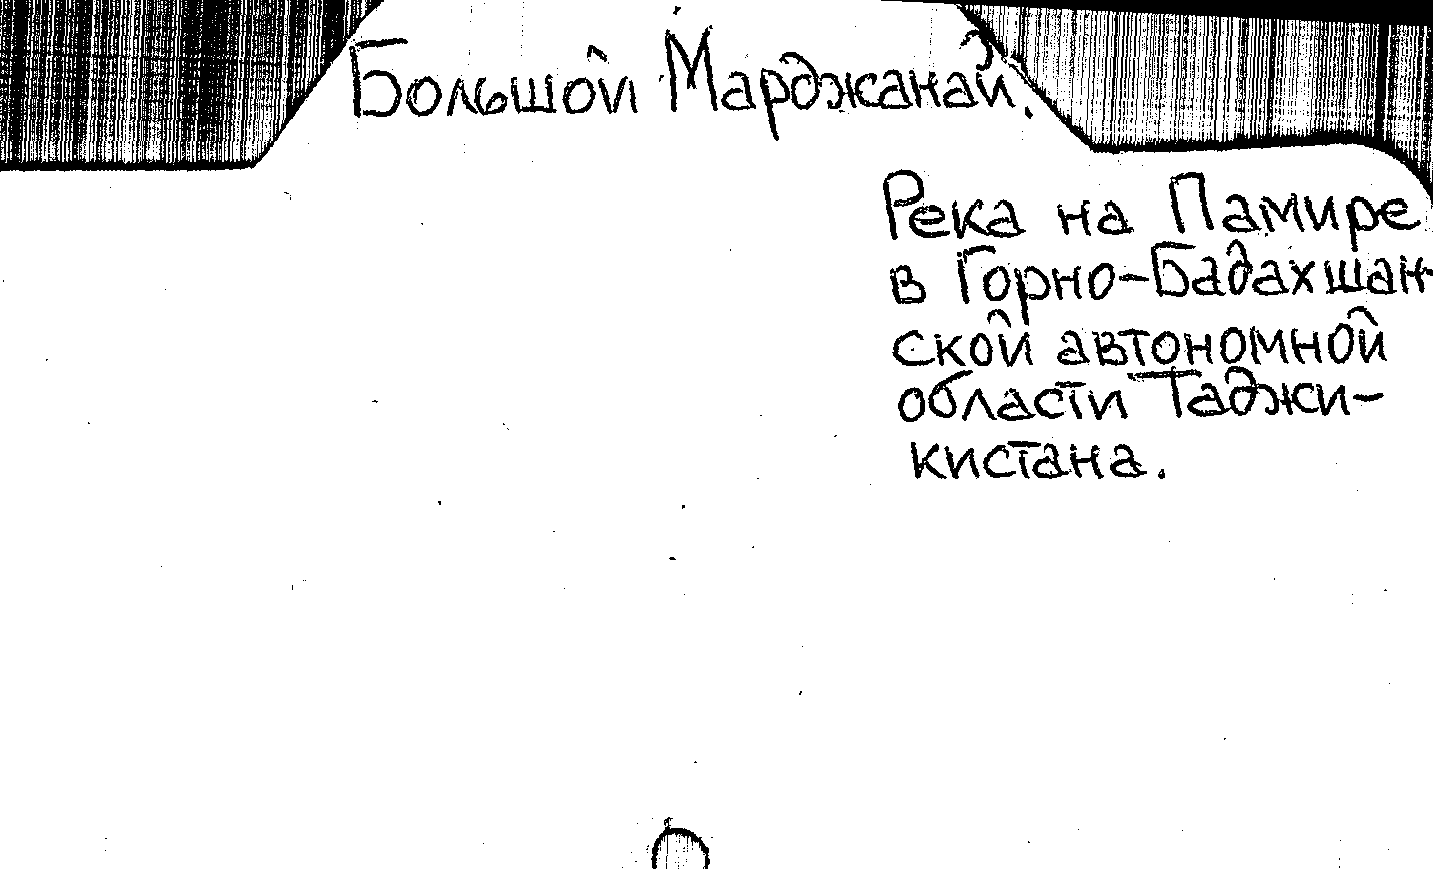 Большой Марджанай.
Река на Памире
в Горно-Бадахшан-
ской автономной
области Таджи-
кистана.